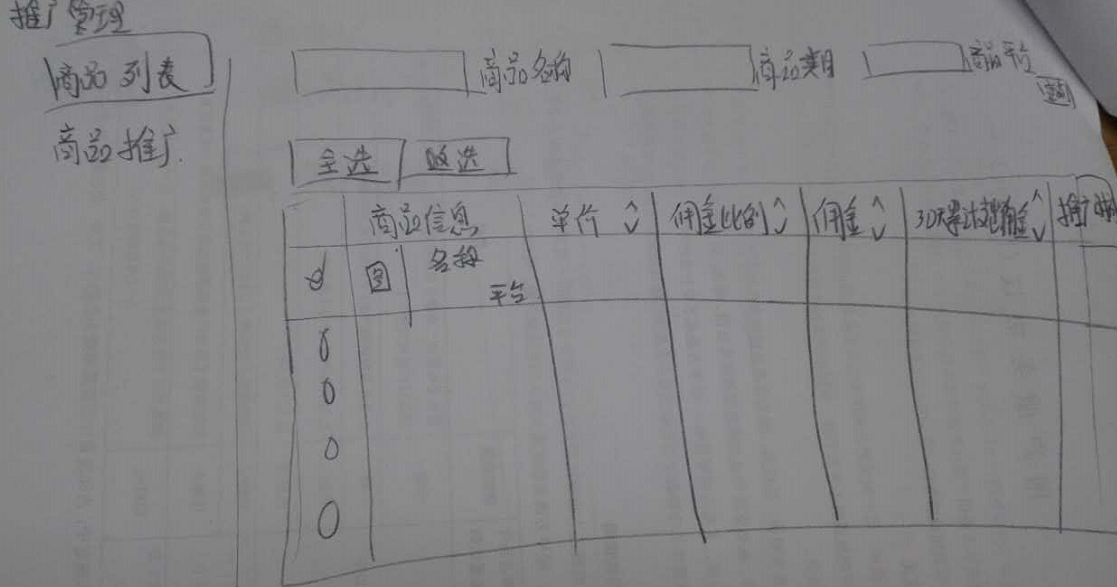 推广管理
商品列表
商品推广
商品名称 商品类目 商品平台
查询
全选 取选
商品信息 单价 佣金比例 佣金 30天累计
图 名称
平台